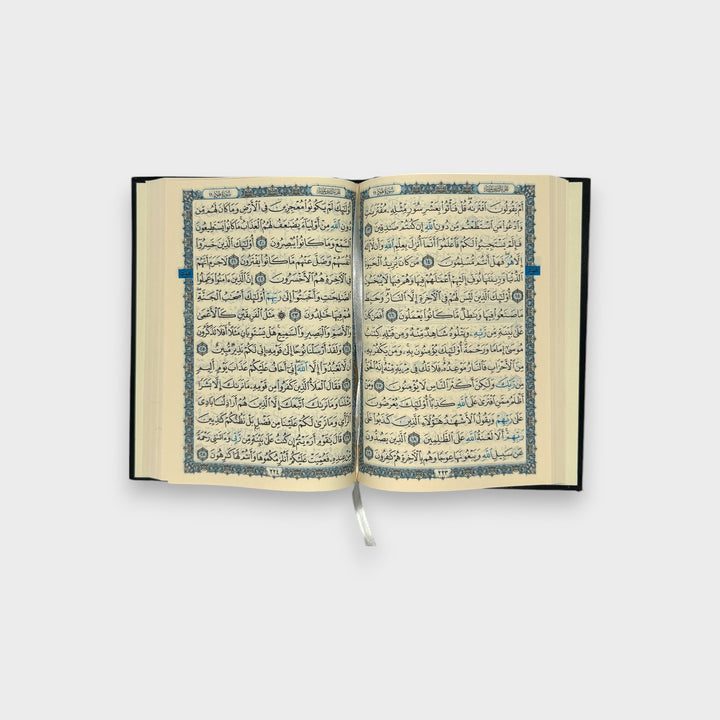 سُورَةُ هُودٍ ١١
أَمْ يَقُولُونَ ٱفْتَرَىٰهُ قُلْ فَأْتُوا۟ بِعَشْرِ سُوَرٍ مِّثْلِهِۦ مُفْتَرَيَـٰتٍ
وَٱدْعُوا۟ مَنِ ٱسْتَطَعْتُم مِّن دُونِ ٱللَّهِ إِن كُنتُمْ صَـٰدِقِينَ
١٣ فَإِلَّمْ يَسْتَجِيبُوا۟ لَكُمْ فَٱعْلَمُوٓا۟ أَنَّمَآ أُنزِلَ بِعِلْمِ ٱللَّهِ وَأَن لَّآ إِلَـٰهَ
إِلَّا هُوَ فَهَلْ أَنتُم مُّسْلِمُونَ ١٤ مَن كَانَ يُرِيدُ ٱلْحَيَوٰةَ
ٱلدُّنْيَا وَزِينَتَهَا نُوَفِّ إِلَيْهِمْ أَعْمَـٰلَهُمْ فِيهَا وَهُمْ فِيهَا لَا يُبْخَسُونَ
١٥ أُو۟لَـٰٓئِكَ ٱلَّذِينَ لَيْسَ لَهُمْ فِى ٱلْـَٔاخِرَةِ إِلَّا ٱلنَّارُ وَحَبِطَ
مَا صَنَعُوا۟ فِيهَا وَبَـٰطِلٌ مَّا كَانُوا۟ يَعْمَلُونَ ١٦ أَفَمَن كَانَ
عَلَىٰ بَيِّنَةٍ مِّن رَّبِّهِۦ وَيَتْلُوهُ شَاهِدٌ مِّنْهُ وَمِن قَبْلِهِۦ كِتَـٰبُ
مُوسَىٰٓ إِمَامًا وَرَحْمَةً أُو۟لَـٰٓئِكَ يُؤْمِنُونَ بِهِۦ وَمَن يَكْفُرْ بِهِۦ
مِنَ ٱلْأَحْزَابِ فَٱلنَّارُ مَوْعِدُهُۥ فَلَا تَكُ فِى مِرْيَةٍ مِّنْهُ إِنَّهُ ٱلْحَقُّ
مِن رَّبِّكَ وَلَـٰكِنَّ أَكْثَرَ ٱلنَّاسِ لَا يُؤْمِنُونَ ١٧ وَمَنْ
أَظْلَمُ مِمَّنِ ٱفْتَرَىٰ عَلَى ٱللَّهِ كَذِبًا أُو۟لَـٰٓئِكَ يُعْرَضُونَ
عَلَىٰ رَبِّهِمْ وَيَقُولُ ٱلْأَشْهَـٰدُ هَـٰٓؤُلَآءِ ٱلَّذِينَ كَذَبُوا۟ عَلَىٰ
رَبِّهِمْ أَلَا لَعْنَةُ ٱللَّهِ عَلَى ٱلظَّـٰلِمِينَ ١٨ ٱلَّذِينَ يَصُدُّونَ
عَن سَبِيلِ ٱللَّهِ وَيَبْغُونَهَا عِوَجًا وَهُم بِٱلْـَٔاخِرَةِ هُمْ كَـٰفِرُونَ ١٩
٢٢٣
سُورَةُ هُودٍ ١١
أُو۟لَـٰٓئِكَ لَمْ يَكُونُوا۟ مُعْجِزِينَ فِى ٱلْأَرْضِ وَمَا كَانَ لَهُم مِّن
دُونِ ٱللَّهِ مِنْ أَوْلِيَآءَ يُضَـٰعَفُ لَهُمُ ٱلْعَذَابُ مَا كَانُوا۟ يَسْتَطِيعُونَ
ٱلسَّمْعَ وَمَا كَانُوا۟ يُبْصِرُونَ ٢٠ أُو۟لَـٰٓئِكَ ٱلَّذِينَ خَسِرُوٓا۟
أَنفُسَهُمْ وَضَلَّ عَنْهُم مَّا كَانُوا۟ يَفْتَرُونَ ٢١ لَا جَرَمَ أَنَّهُمْ
فِى ٱلْـَٔاخِرَةِ هُمُ ٱلْأَخْسَرُونَ ٢٢ إِنَّ ٱلَّذِينَ ءَامَنُوا۟ وَعَمِلُوا۟
ٱلصَّـٰلِحَـٰتِ وَأَخْبَتُوٓا۟ إِلَىٰ رَبِّهِمْ أُو۟لَـٰٓئِكَ أَصْحَـٰبُ ٱلْجَنَّةِ
هُمْ فِيهَا خَـٰلِدُونَ ٢٣ ۞ مَثَلُ ٱلْفَرِيقَيْنِ كَٱلْأَعْمَىٰ
وَٱلْأَصَمِّ وَٱلْبَصِيرِ وَٱلسَّمِيعِ هَلْ يَسْتَوِيَانِ مَثَلًا أَفَلَا تَذَكَّرُونَ
٢٤ وَلَقَدْ أَرْسَلْنَا نُوحًا إِلَىٰ قَوْمِهِۦٓ إِنِّى لَكُمْ نَذِيرٌ مُّبِينٌ ٢٥
أَن لَّا تَعْبُدُوٓا۟ إِلَّا ٱللَّهَ إِنِّىٓ أَخَافُ عَلَيْكُمْ عَذَابَ يَوْمٍ أَلِيمٍ
٢٦ فَقَالَ ٱلْمَلَأُ ٱلَّذِينَ كَفَرُوا۟ مِن قَوْمِهِۦ مَا نَرَىٰكَ إِلَّا بَشَرًا
مِّثْلَنَا وَمَا نَرَىٰكَ ٱتَّبَعَكَ إِلَّا ٱلَّذِينَ هُمْ أَرَاذِلُنَا بَادِىَ
ٱلرَّأْىِ وَمَا نَرَىٰ لَكُمْ عَلَيْنَا مِن فَضْلٍۭ بَلْ نَظُنُّكُمْ كَـٰذِبِينَ
٢٧ قَالَ يَـٰقَوْمِ أَرَءَيْتُمْ إِن كُنتُ عَلَىٰ بَيِّنَةٍ مِّن رَّبِّى وَءَاتَىٰنِى رَحْمَةً
مِّنْ عِندِهِۦ فَعُمِّيَتْ عَلَيْكُمْ أَنُلْزِمُكُمُوهَا وَأَنتُمْ لَهَا كَـٰرِهُونَ ٢٨
٢٢٤